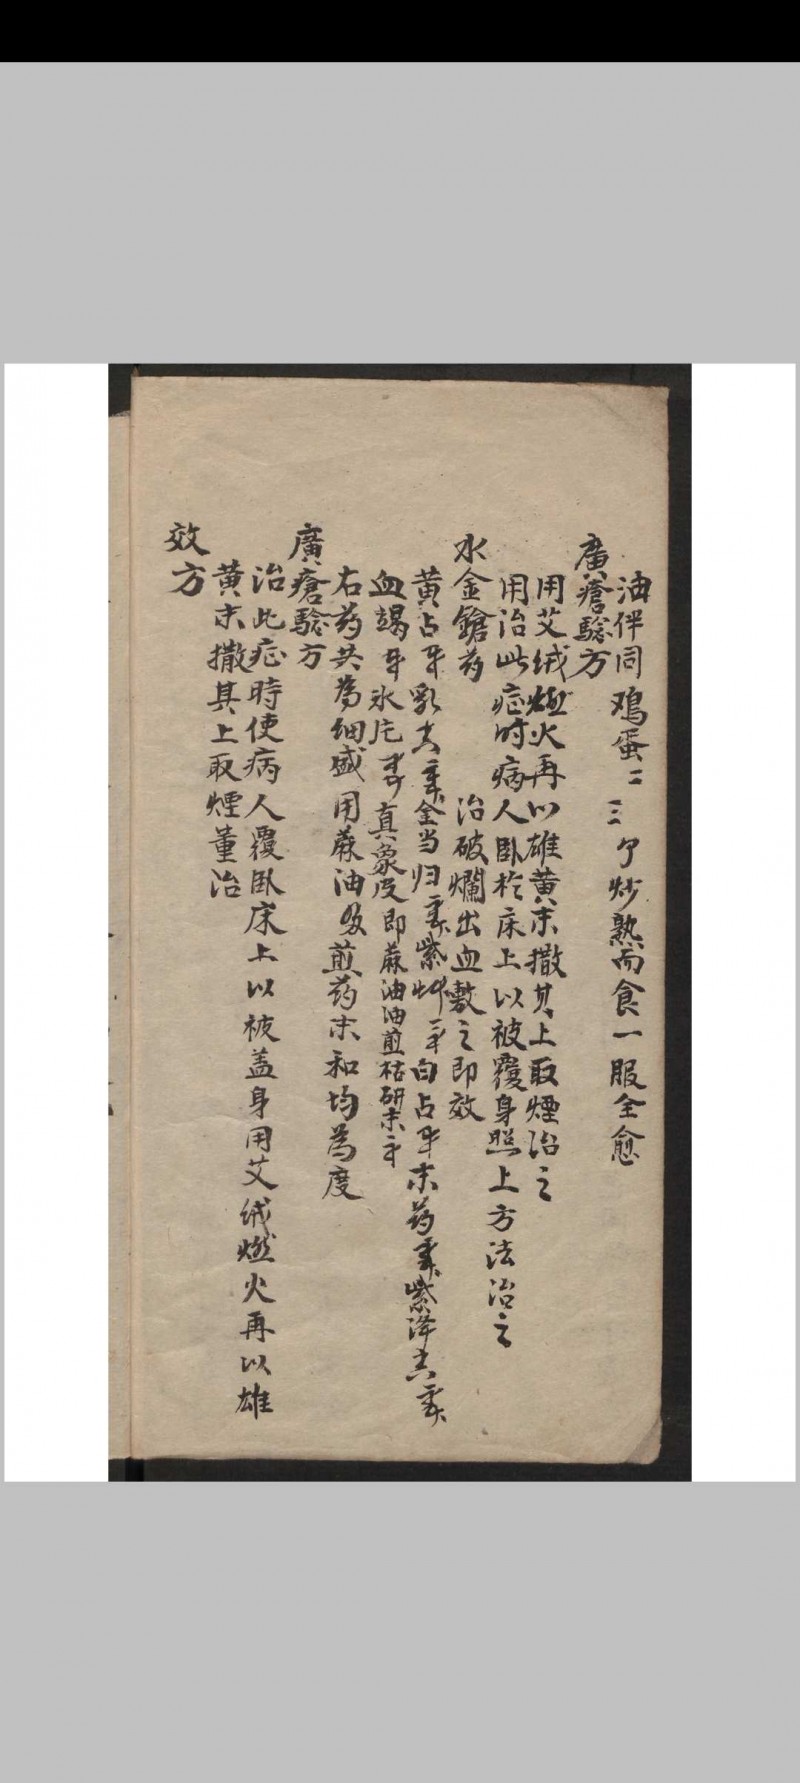 油伴同鸡蛋二三个炒熟而食一服全愈
廣瘡騐方
用艾绒燃火再以雄黄末撒其上取煙治之
用治此症时病人卧於床上以被覆身照上方法治之
水金鎗药 治破爛出血敷之即效
黄占 乳 当归 紫艸 白占 末药 紫降
血竭 氷片 真象皮即蔴油油煎枯研末
右药共為细 用蔴油 煎药末和均為度
廣瘡騐方
治此症時使病人覆卧床上以被盖身用艾绒燃火再以雄
黄末撒其上取煙董治
效方